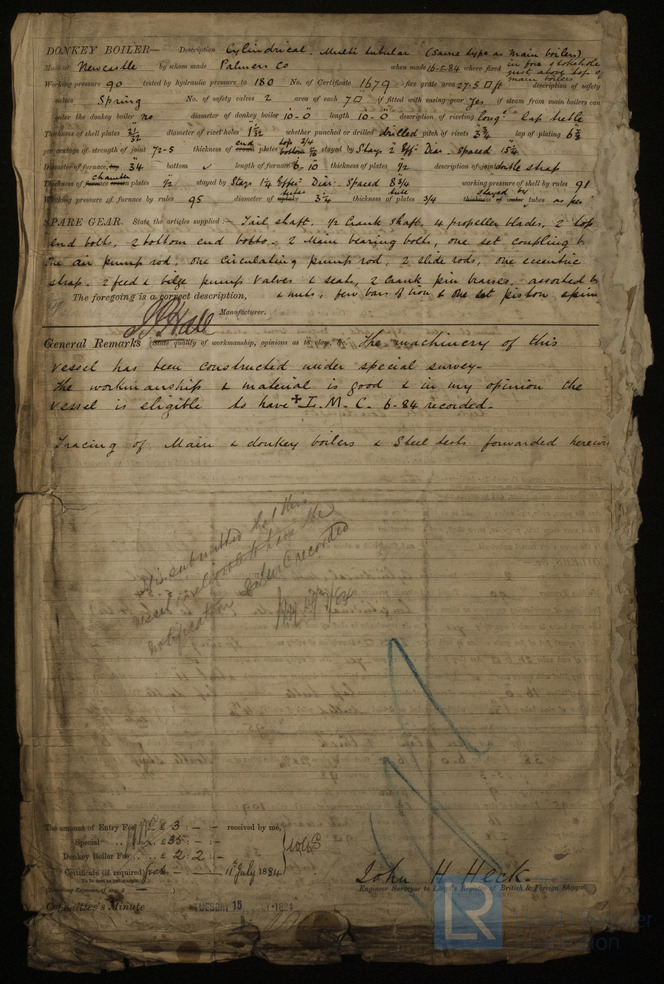 DONKEY BOILER— Description Cylindrical. Multi tubular (Same type as main boilers)
Made at Newcastle by whom made Palmers Co when made 16-5-84 where fixed in fore stokehole just above top of main boilers
Working pressure 90 tested by hydraulic pressure to 180 No. of Certificate 1679 fire grate area 27.5 □ ft description of safety
valves Spring No. of safety valves 2 area of each 7□" if fitted with easing gear yes if steam from main boilers can
enter the donkey boiler no diameter of donkey boiler 10-0 length 10-0 description of riveting long¹ Lap treble
Thickness of shell plates 21/32 diameter of rivet holes 1 1/32 whether punched or drilled drilled pitch of rivets lap of plating
per centage of strength of joint 72-5 thickness of end plates top 3/4 bottom stayed by Stays 2 Eff Diar. Spaced
Diameter of furnace, top 34 bottom length of furnace 6-10 thickness of plates 1/2 description of joint double strap
Thickness of chamber plates 1/2 stayed by Stays 1 1/4 Eff Diar Spaced 8 3/4 working pressure of shell by rules 91
Working pressure of furnace by rules 95 diameter of tubes 3 1/4 thickness of plates 3/4 stayed by tubes as per
SPARE GEAR. State the articles supplied:— Tail shaft, 1/2 Crank Shaft, 4 propeller blades, 2 top
end bolts, 2 bottom end bolts. 2 Main bearing bolts, one set coupling b
one air pump rod, one circulating pump rod, 2 slide rods, one eccentric
strap. 2 feed & bilge pump valves & seats, 2 crank pin brasses, assorted b
The foregoing is a correct description, & nuts, few bars of iron & one set piston spin
Manufacturer.
General Remarks (State quality of workmanship, opinions as to class, &c. The machinery of this
vessel has been constructed under special survey.
The workmanship & material is good & in my opinion the
vessel is eligible to have ✠ L.M.C. 6-84 recorded.
Tracing of Main & donkey boilers & Steel tests forwarded herewi
It is submitted that this
vessel is eligible to have the
notification recorded
The amount of Entry Fee £ 3 : – : – received by me,
Special £ 35 : – : –
Donkey Boiler Fee £ 2 : 2 : –
Certificate (if required) 11th July 1884
John H Heck.
Engineer Surveyor to Lloyd's Register of British & Foreign Shipping
Committee's Minute TUESDAY 15 1884
LR